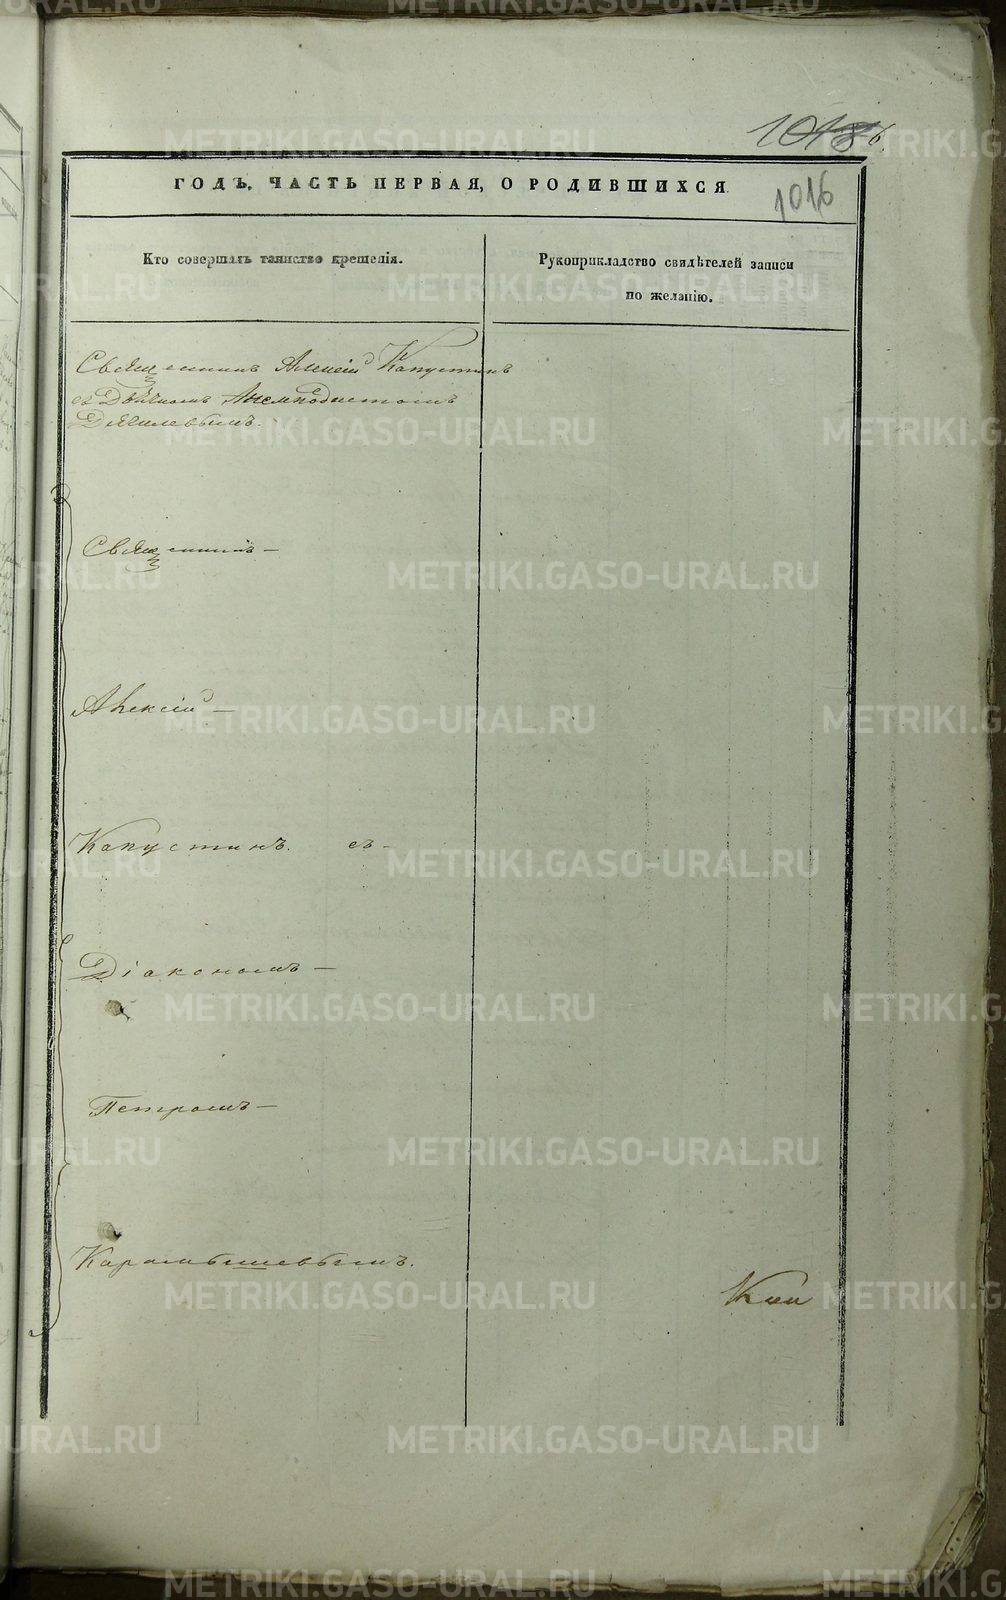 1016
ГОДЪ, ЧАСТЬ ПЕРВАЯ, О РОДИВШИХСЯ
Кто совершалъ таинство крещенія.
Рукоприкладство свидѣтелей записи
по желанію.
Священникъ Алексій Капустинъ
съ Дьячкомъ Анемподистомъ
Дягилевымъ.
Священникъ –
Алексій –
Капустинъ. съ –
Діакономъ –
Петромъ –
Карамышевымъ.
METRIKI.GASO-URAL.RU